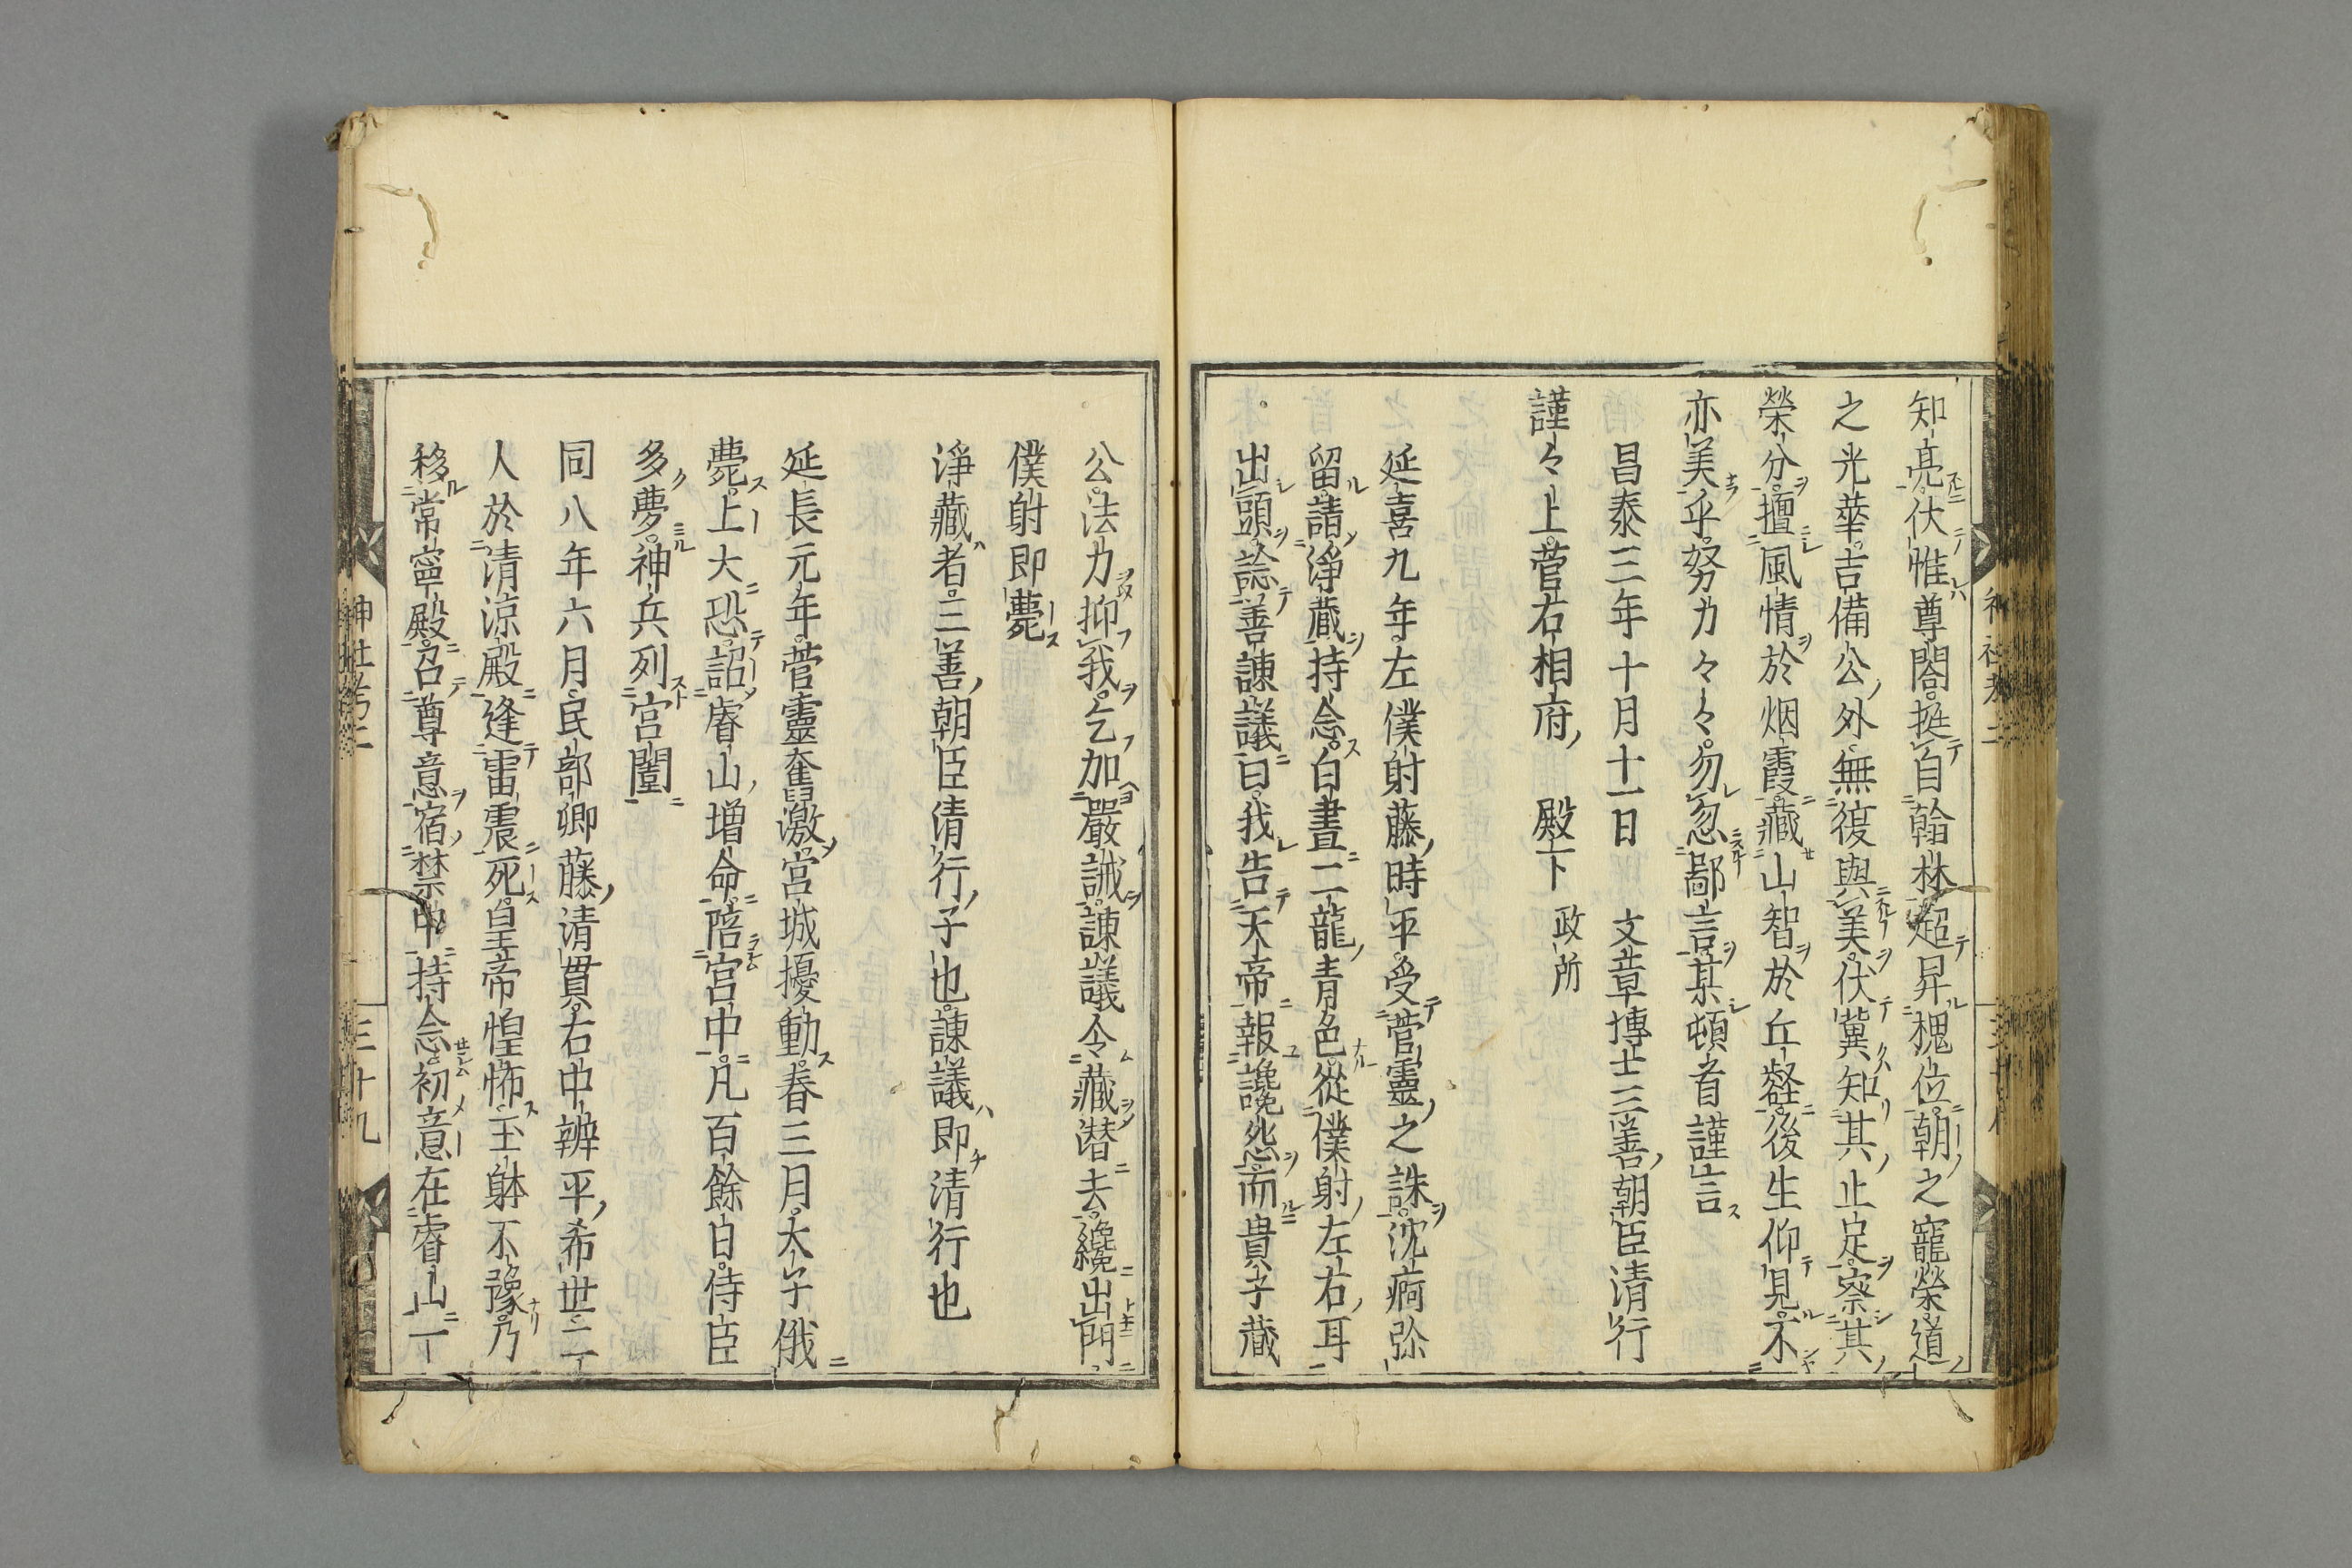 知亮伏惟尊閤挺自翰林超昇槐位朝之寵榮道
之光華吉備公外無復與美伏冀知其止足察其
榮分擅風情於烟霞藏山智於丘壑後生仰見不
亦美乎努力々々勿忽鄙言某頓首謹言
昌泰三年十月十一日 文章博士三善朝臣清行
謹々上菅右相府 殿下 政所
延喜九年左僕射藤時平受菅靈之誅沈痾弥
留請淨藏持念白晝二龍青色從僕射左右耳
出頭諗善諫議曰我告天帝報讒怨而貴子藏
公法力抑我乞加嚴誡諫議令藏潜去纔出門
僕射即薨
淨藏者三善朝臣清行子也諫議即清行也
延長元年菅靈奮激宮城擾動春三月太子俄
薨上大恐詔睿山增命陪宮中凡百餘日侍臣
多夢神兵列宮闉
同八年六月民部卿藤清貫右中辨平希世二
人於清涼殿逢雷震死皇帝惶怖玉躰不豫乃
移常寧殿召尊意宿禁中持念初意在睿山一
神社考二
三十九